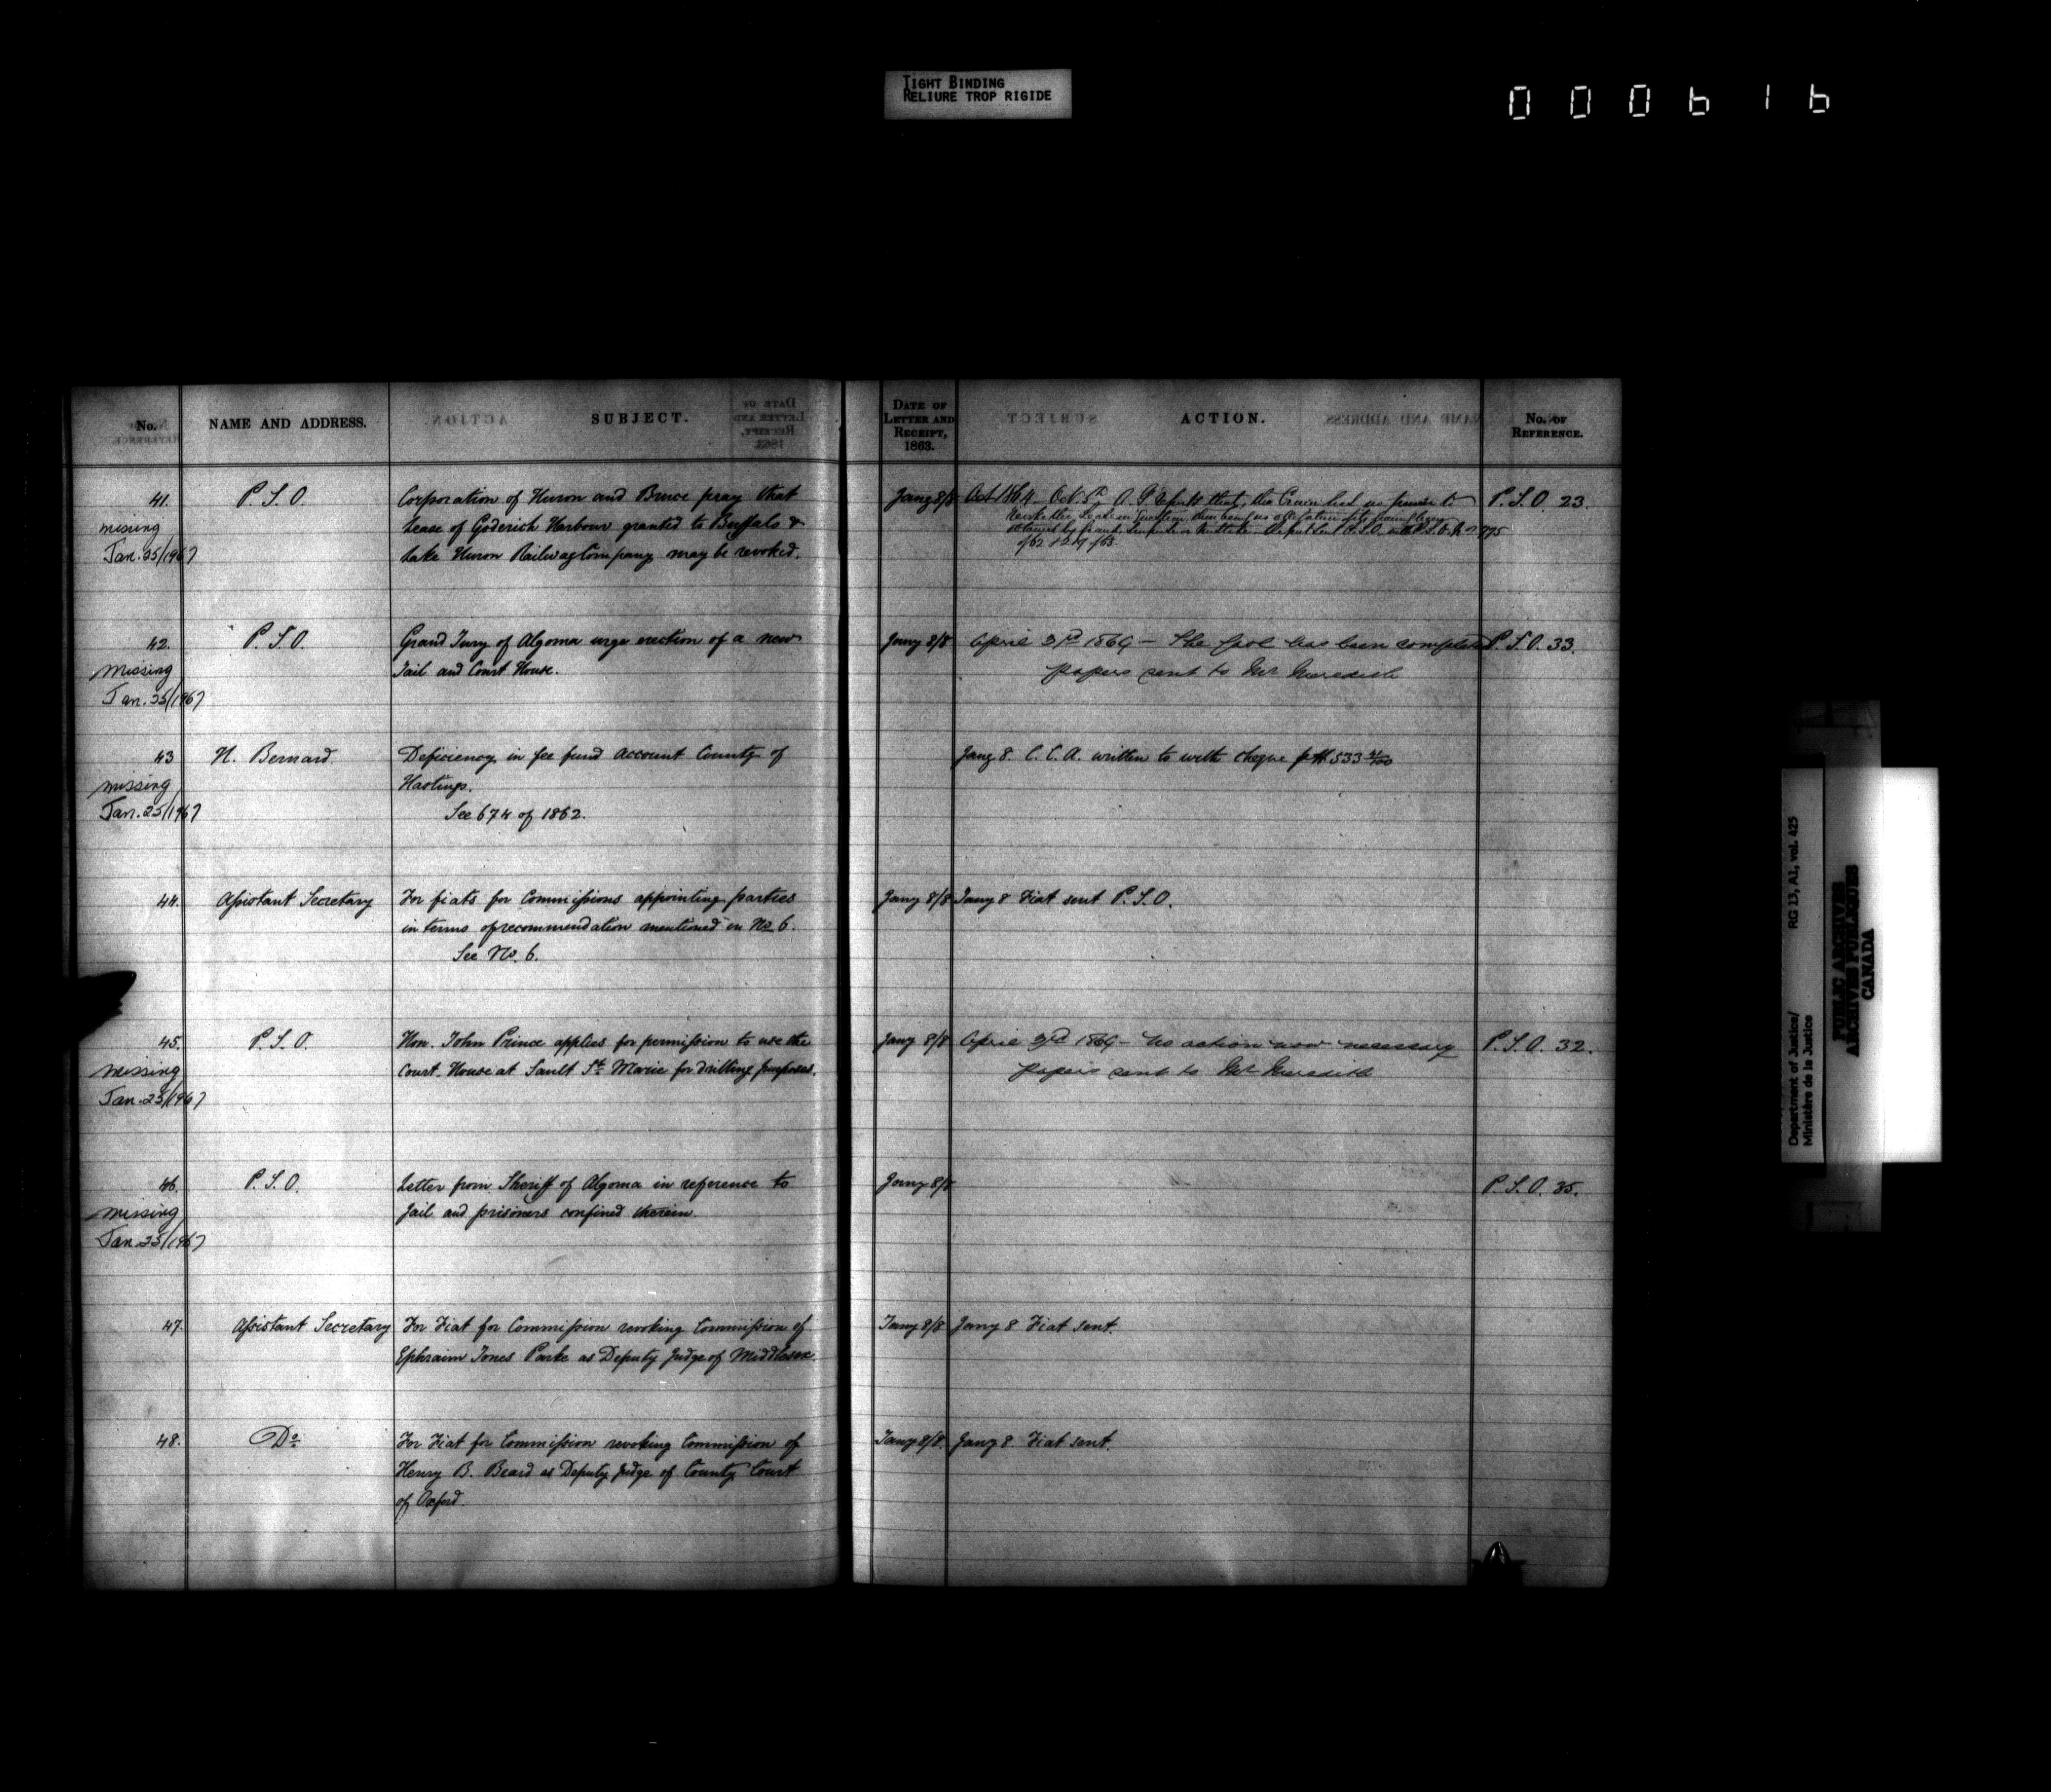 TIGHT BINDING
RELIURE TROP RIGIDE
000616
No.
NAME AND ADDRESS.
SUBJECT.
DATE OF LETTER AND RECEIPT, 1863.
ACTION.
No. OF REFERENCE.
41.
missing
Jan. 25/1967
P. S. O.
Corporation of Huron and Bruce pray that
Lease of Goderich Harbour granted to Buffalo &
Lake Huron Railway Company may be revoked.
Jany 8/8
Oct 1864 Oct. 5th A. G. reports that the Crown had no power to
P. S. O. 23.
42.
Missing
Jan. 25/1967
P. S. O.
Grand Jury of Algoma urge erection of a new
Jail and Court House.
Jany 8/8
April 3rd 1869 — The Gaol has been completed
papers sent to Mr Meredith
P. S. O. 33.
43
missing
Jan. 25/1967
H. Bernard
Deficiency in fee fund account County of
Hastings.
See 674 of 1862.
Jany 8. C. C. A. written to with cheque $533
44.
Assistant Secretary
For fiats for Commissions appointing parties
in terms of recommendation mentioned in No 6.
See No. 6.
Jany 8/8
Jany 8 Fiat sent P. S. O.
45.
Missing
Jan. 25/1967
P. S. O.
Hon. John Prince applies for permission to use the
Court House at Sault Ste Marie for drilling purposes.
Jany 8/8
April 3rd 1869 — No action now necessary
papers sent to Mr Meredith
P. S. O. 32.
46.
Missing
Jan. 25/1967
P. S. O.
Letter from Sheriff of Algoma in reference to
Jail and prisoners confined therein.
Jany 8/8
P. S. O. 35.
47.
Assistant Secretary
For Fiat for Commission revoking Commission of
Ephraim Jones Parke as Deputy Judge of Middlesex.
Jany 8/8
Jany 8 Fiat sent.
48.
Do
For Fiat for Commission revoking Commission of
Henry B. Beard as Deputy Judge of County Court
of Oxford.
Jany 8/8.
Jany 8 Fiat sent.
Department of Justice/ RG 13, A1, vol. 425
Ministère de la Justice
PUBLIC ARCHIVES
ARCHIVES PUBLIQUES
CANADA